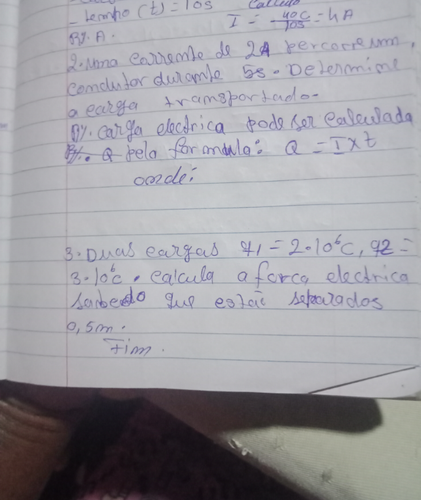 - tempo (t) = 10s I = 40C/10s = 4A
R/: A.
2. Uma corrente de 2A percorre um,
condutor durante 5s. Determine
a carga transportado.
R/. carga electrica pode ser calculada
R/. Q pela formula: Q = I x t
onde:
3. Duas cargas q1 = 2.10⁶C, q2 =
3.10⁶c. calcula a forca electrica
sabedo que estão separados
0,5m.
Fim.